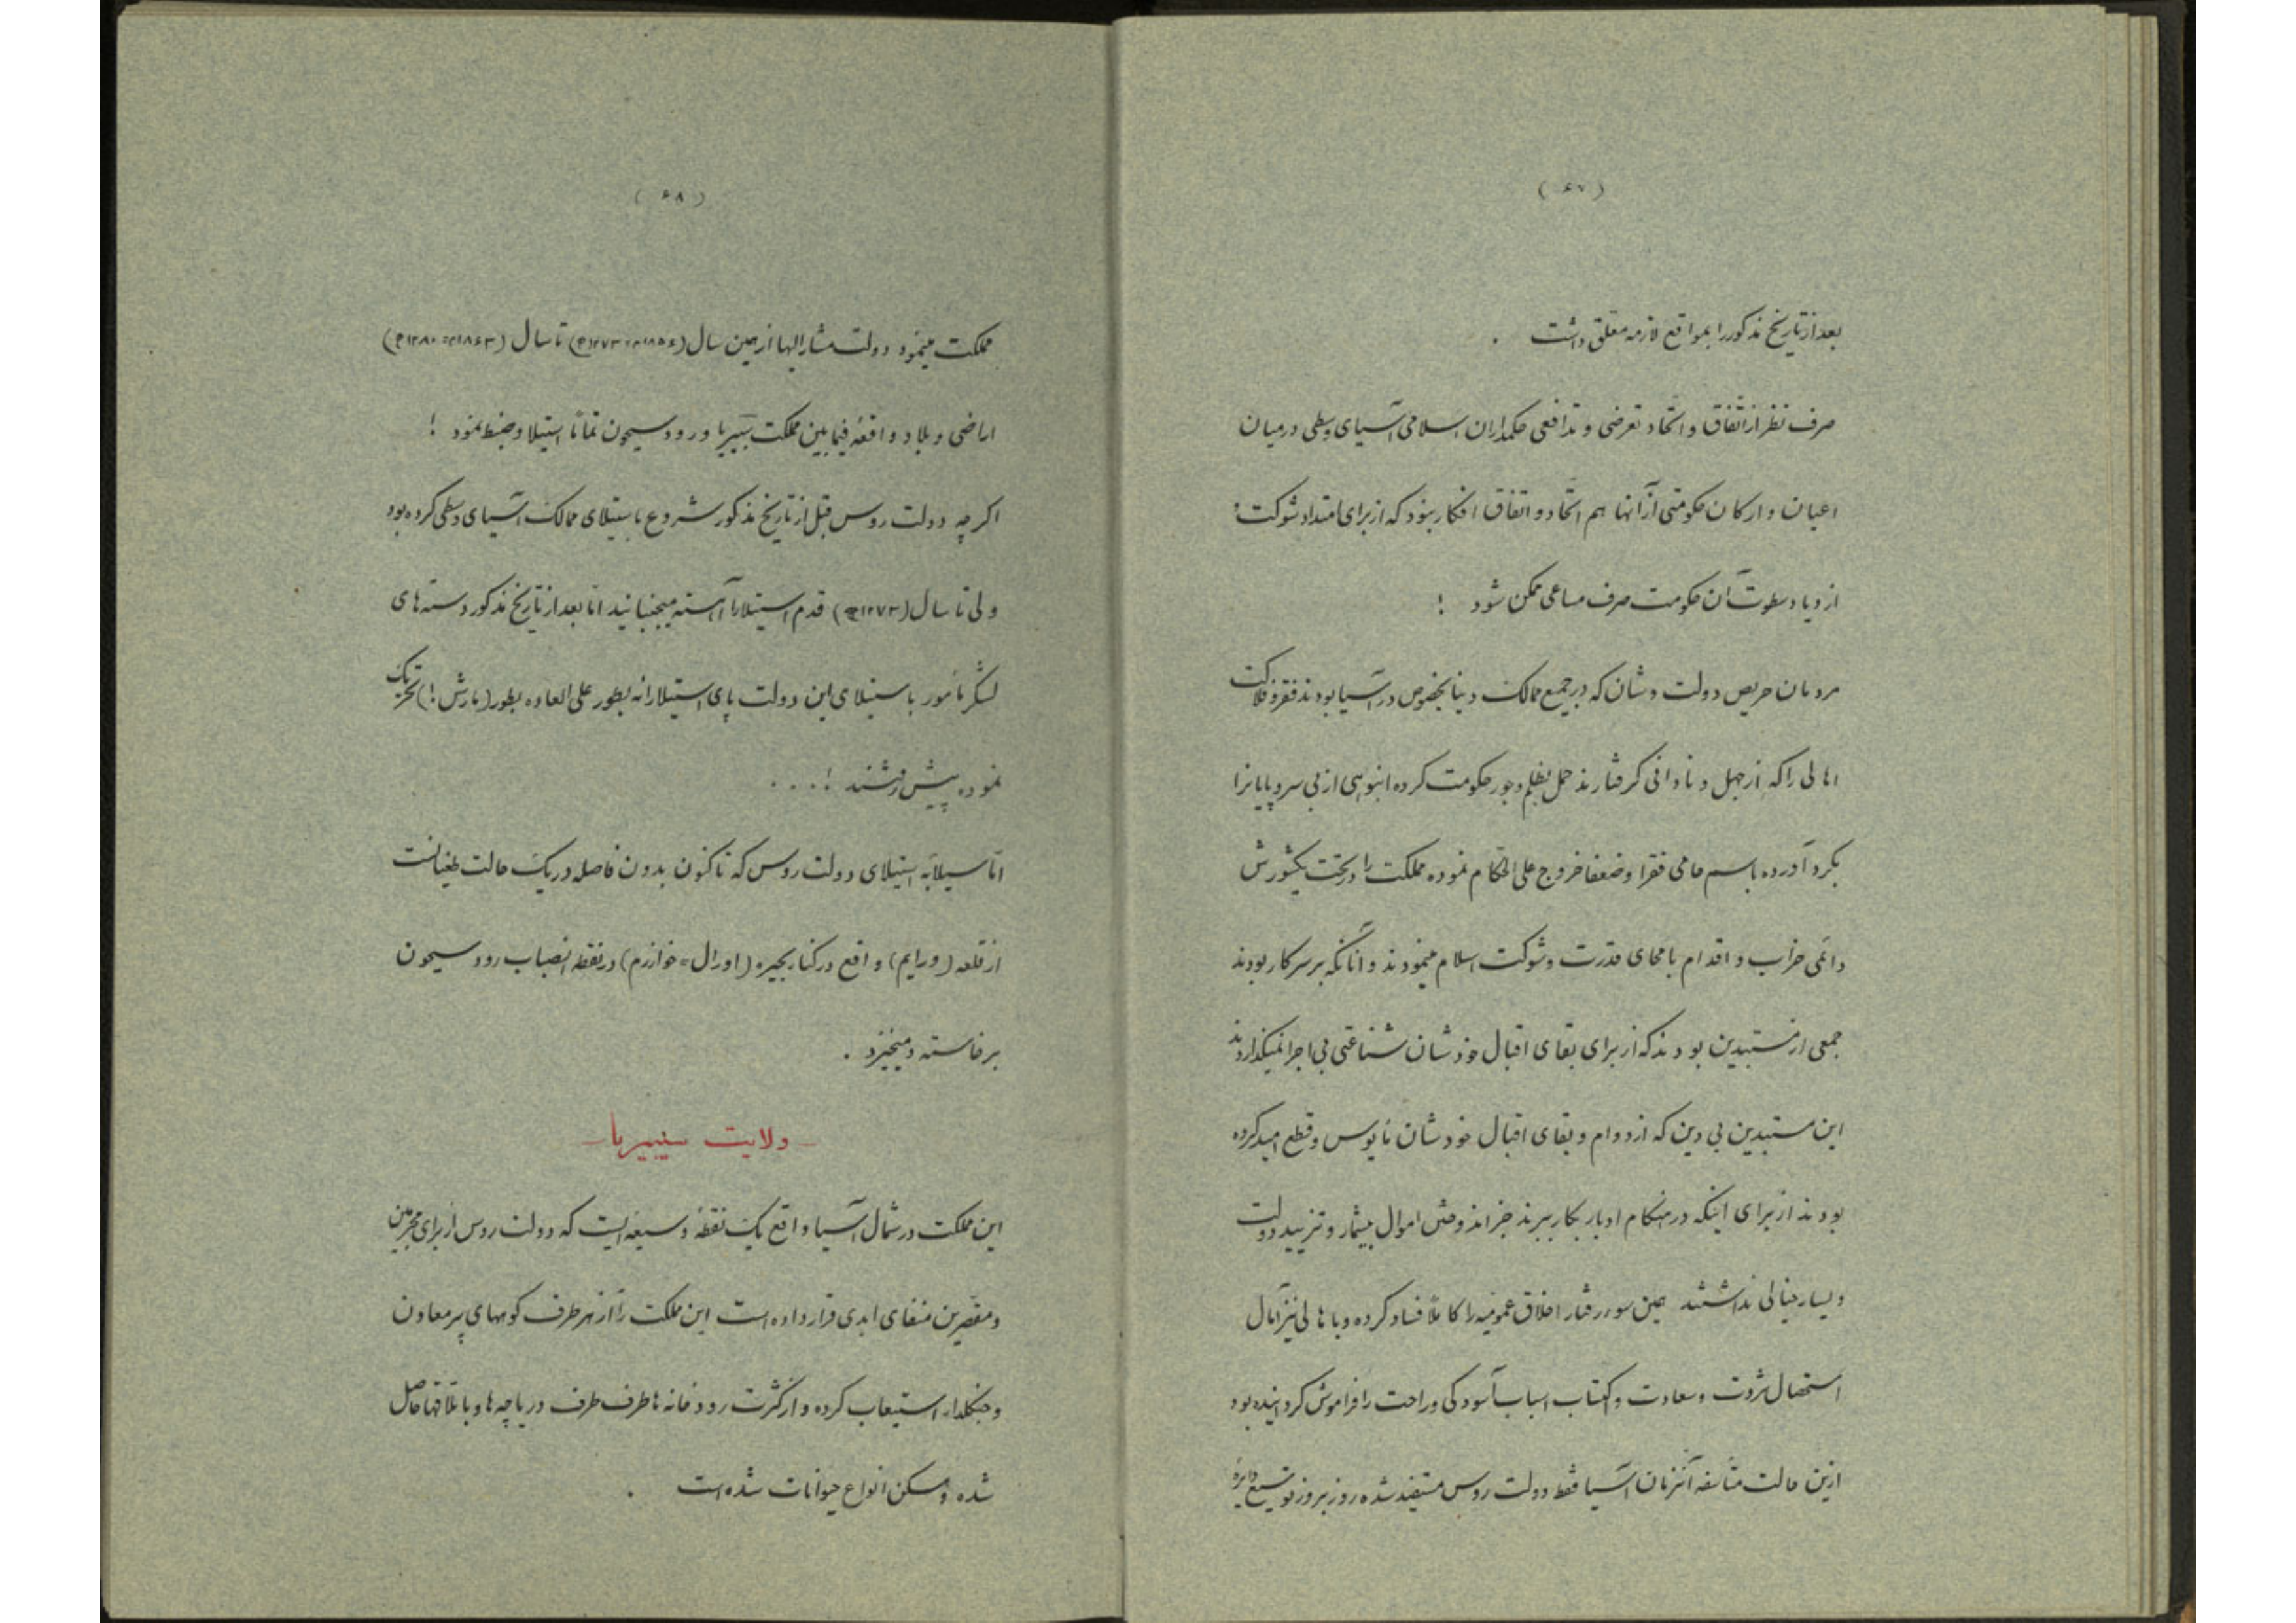 ( ۶۷ )
بعد از تاریخ مذکور را بمواقع لازمه معلق داشت .
صرف نظر از اتفاق و اتحاد تعرضی و تدافعی حکمداران اسلامی آسیای وسطی در میان
اعیان و ارکان حکومتی از آنها هم اتحاد و اتفاق افکار نبود که از برای امتداد شوکت و
ازدیاد سطوت آن حکومت صرف مساعی ممکن شود !
مردمان حریص دولت و شان که در جمیع ممالک دنیا بخصوص در آسیا بودند فقر و فلاکت
اهالی را که از جهل و نادانی گرفتارند حمل بظلم و جور حکومت کرده انبوهی از بی سر و پایانرا
بگرد آورده باسم حامی فقرا و ضعفا خروج علی الحکام نموده مملکت را در تحت یکشورش
دائمی خراب و اقدام بامحای قدرت و شوکت اسلام مینمودند و آنانکه بر سر کار بودند
جمعی از مستبدین بودند که از برای بقای اقبال خودشان شناعتی بی اجرا نمیگذاردند
این مستبدین بی دین که از دوام و بقای اقبال خودشان مأیوس و قطع امید کرده
بودند از برای اینکه در هنگام ادبار بکار ببرند جز اندوختن اموال بیشمار و تزیید دولت
و یسار خیالی نداشتند همین سوء رفتار اخلاق عمومیه را کاملاً فساد کرده و باهالی نیز آمال
استحصال ثروت و سعادت و اکتساب اسباب آسودگی و راحت را فراموش گردانیده بود
ازین حالت متأسفه آنزمان آسیا فقط دولت روس مستفید شده روز بروز توسیع دایرهٔ
( ۶۸ )
مملکت مینمود دولت مشار الیها از همین سال (۱۸۵۶م=۱۲۷۳ه) تا سال (۱۸۶۳م=۱۲۸۰ه)
اراضی و بلاد واقعه فیمابین مملکت سیبریا و رود سیحون تماماً استیلا و ضبط نمود !
اگرچه دولت روس قبل از تاریخ مذکور شروع باستیلای ممالک آسیای وسطی کرده بود
ولی تا سال (۱۲۷۳ه) قدم استیلا را آهسته میجنبانید اما بعد از تاریخ مذکور دسته های
لشگر مأمور باستیلای این دولت پای استیلا را نه بطور علی العاده بطور (مارش !) تحریک
نموده پیش رفتند ! . . . .
اما سیلابه استیلای دولت روس که تا کنون بدون فاصله در یک حالت طغیانست
از قلعه (ورایم) واقع در کنار بحیره (اورال = خوارزم) در نقطه انصباب رود سیحون
برخاسته و میخیزد .
ـ ولایت سیبیریا ـ
این مملکت در شمال آسیا واقع یک نقطهٔ وسیعه ایست که دولت روس از برای مجرمین
و مقصرین منفای ابدی قرار داده است این مملکت را از هر طرف کوههای پر معادن
و جنگلدار استیعاب کرده و از کثرت رودخانه ها طرف طرف دریاچه ها و باتلاقها حاصل
شده و مسکن انواع حیوانات شده است .